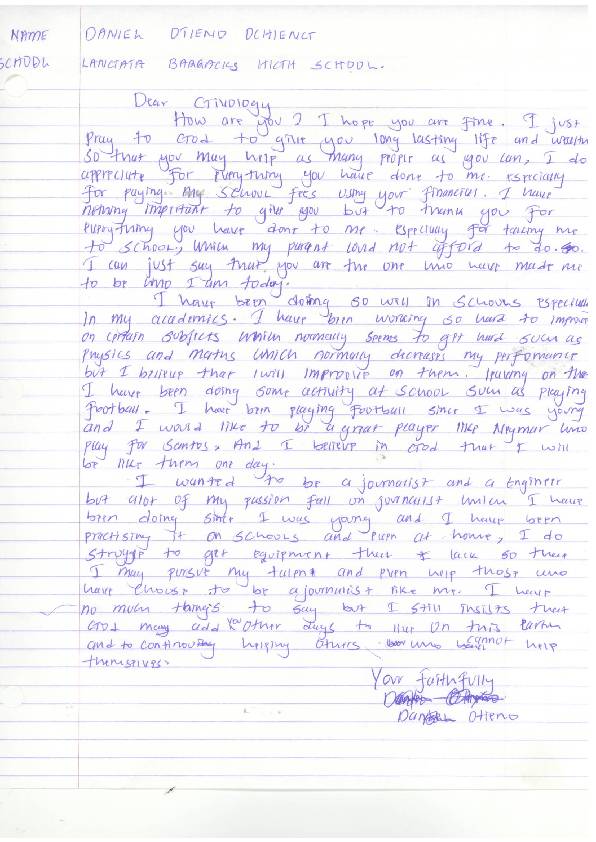 NAME DANIEL OTIENO OCHIENG
SCHOOL LANGATA BARRACKS HIGH SCHOOL.
Dear Givology
How are you? I hope you are fine. I just
pray to God to give you long lasting life and wealth
so that you may help as many people as you can, I do
appreciate for everything you have done to me. especially
for paying my school fees using your financial. I have
nothing important to give you but to thank you for
everything you have done to me. especially for taking me
to school, which my parent could not afford to do. so.
I can just say that you are the one who have made me
to be who I am today.
I have been doing so well in schools especially
In my academics. I have been working so hard to improve
on certain subjects which normally seems to get hard such as
physics and maths which normally decreases my perfomance
but I believe that I will improve on them. leaving on that
I have been doing some activity at school such as playing
football. I have been playing football since I was young
and I would like to be a great player like Neymar who
play for Santos. And I believe in God that I will
be like them one day.
I wanted to be a journalist and a Engineer
but alot of my passion fall on journalist which I have
been doing since I was young and I have been
practising it on schools and even at home, I do
struggle to get equipment that I lack so that
I may pursue my talent and even help those who
have choose to be a journalist like me. I have
no much things to say but I still insists that
God may add you other days to live on this Earth
and to continouing helping others who cannot help
themselves.
Your faithfully
Daniel Otieno